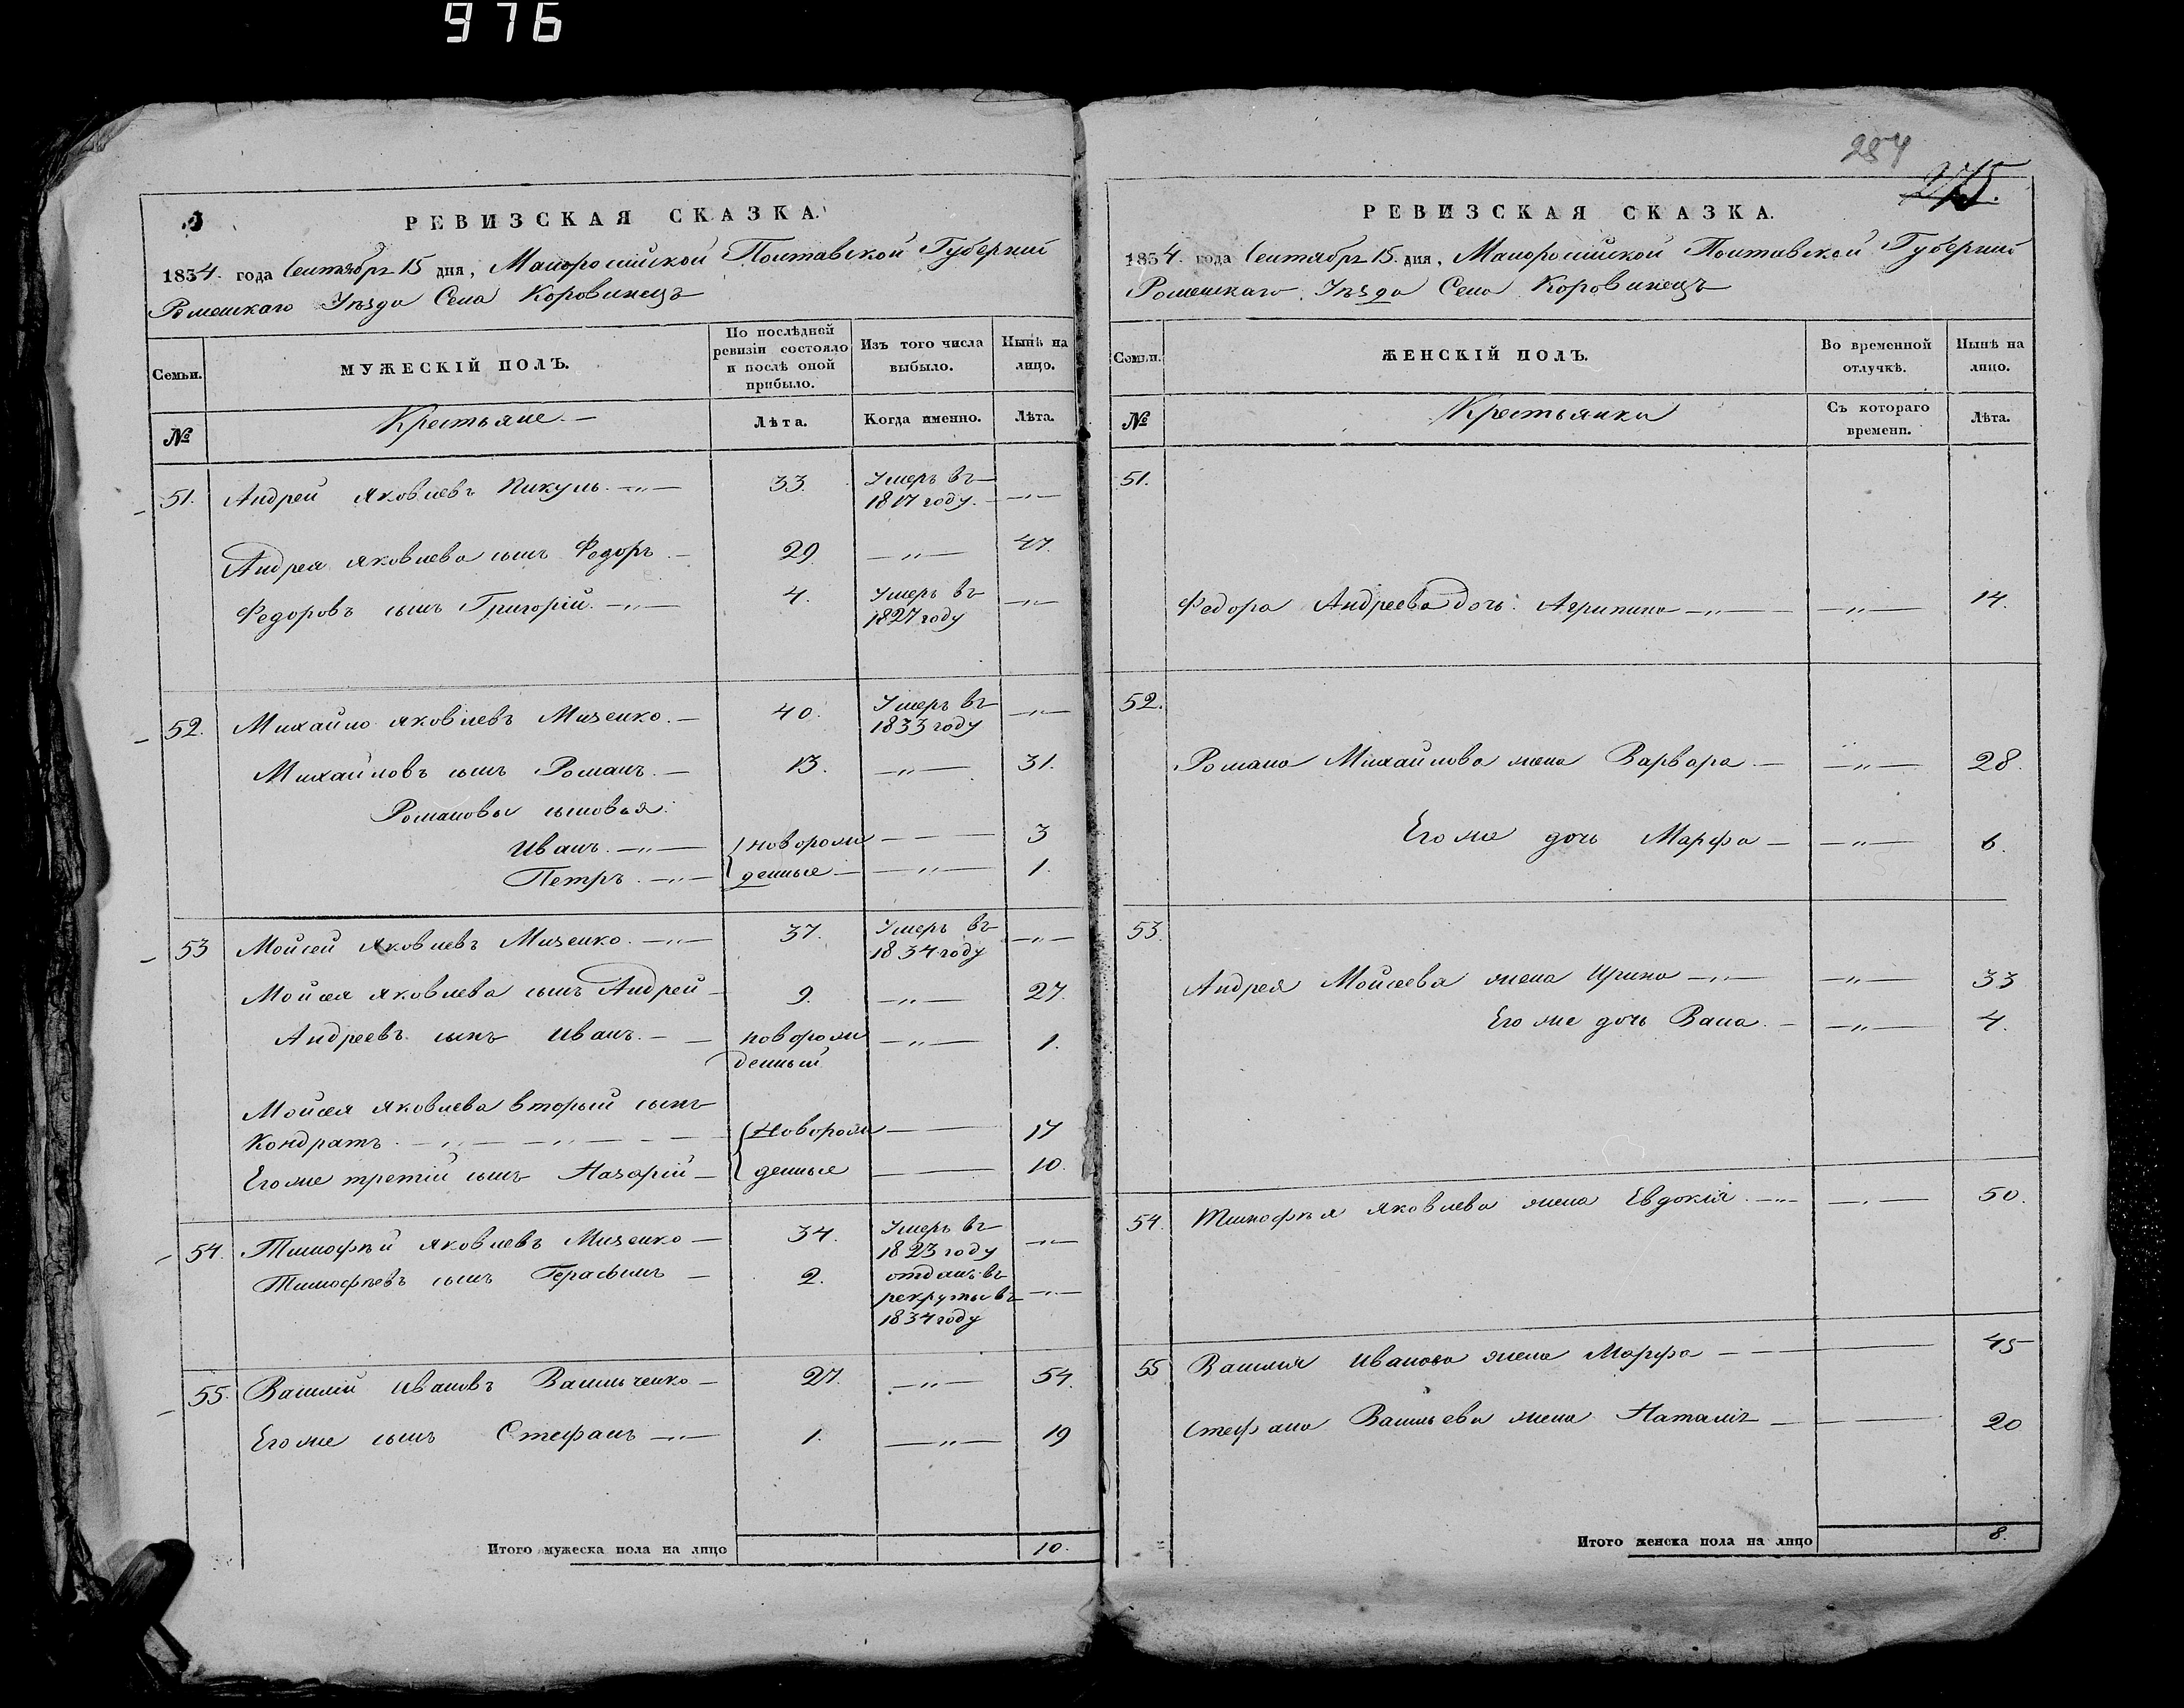 976
РЕВИЗСКАЯ СКАЗКА.
1834. года Сентября 15 дня, Малоросiйской Полтавской Губернiи
Роменскаго Уѣзда Села Коровинецъ
Семьи.
МУЖЕСКIЙ ПОЛЪ.
По послѣдней ревизiи состояло и послѣ оной прибыло.
Изъ того числа выбыло.
Нынѣ на лицо.
№
Крестьяне.—
Лѣта.
Когда именно.
Лѣта.
51. Андрей Яковлевъ Пикуль. —„— 33. Умеръ въ 1817 году. —„—
Андрея Яковлева сынъ Федоръ.— 29. —„— 47.
Федоровъ сынъ Григорiй. —„— 4. Умеръ въ 1827 году —„—
52. Михайло Яковлевъ Мизенко.— 40. Умеръ въ 1833 году —„—
Михайловъ сынъ Романъ.— 13. —„— 31.
Романовы сыновья:
Иванъ. —„— новорож — — 3
Петръ. —„— денные — —„— 1.
53 Мойсей Яковлевъ Мизенко. —„— 37. Умеръ въ 1834 году —„—
Мойсея Яковлева сынъ Андрей— 9. —„— 27.
Андреевъ сынъ Иванъ.— — новорож —„— 1.
денный
Мойсея Яковлева вторый сынъ
Кондратъ. —„— —„— — — новорож — — 17
Его же третiй сынъ Назарiй— денные — — 10.
54. Тимофѣй Яковлевъ Мизенко— 34. Умеръ въ 1823 году —„—
Тимофѣевъ сынъ Герасымъ — 2. отданъ въ рекруты въ 1834 году —„—
55. Василiй Ивановъ Васильченко— 27. —„— 54.
Его же сынъ Стефанъ —„— 1. —„— 19
Итого мужеска пола на лицо 10.
284
275.
РЕВИЗСКАЯ СКАЗКА.
1834. года Сентября 15. дня, Малоросiйской Полтавской Губернiи
Роменскаго Уѣзда Села Коровинецъ
Семьи.
ЖЕНСКIЙ ПОЛЪ.
Во временной отлучкѣ.
Нынѣ на лицо.
№
Крестьянки
Съ котораго времени.
Лѣта.
51.
Федора Андреева дочь. Агрипина —„— —„— 14.
52.
Романа Михайлова жена Варвара — —„— 28.
Его же дочь Марфа — —„— 6.
53.
Андрея Мойсеева жена Ирина —„— —„— 33
Его же дочь Васа.— —„— 4.
54. Тимофѣя Яковлева жена Евдокiя. —„— —„— 50.
55 Василия Иванова жена Марфа — — — 45
Стефана Васильева жена Наталiя — — 20
Итого женска пола на лицо 8.